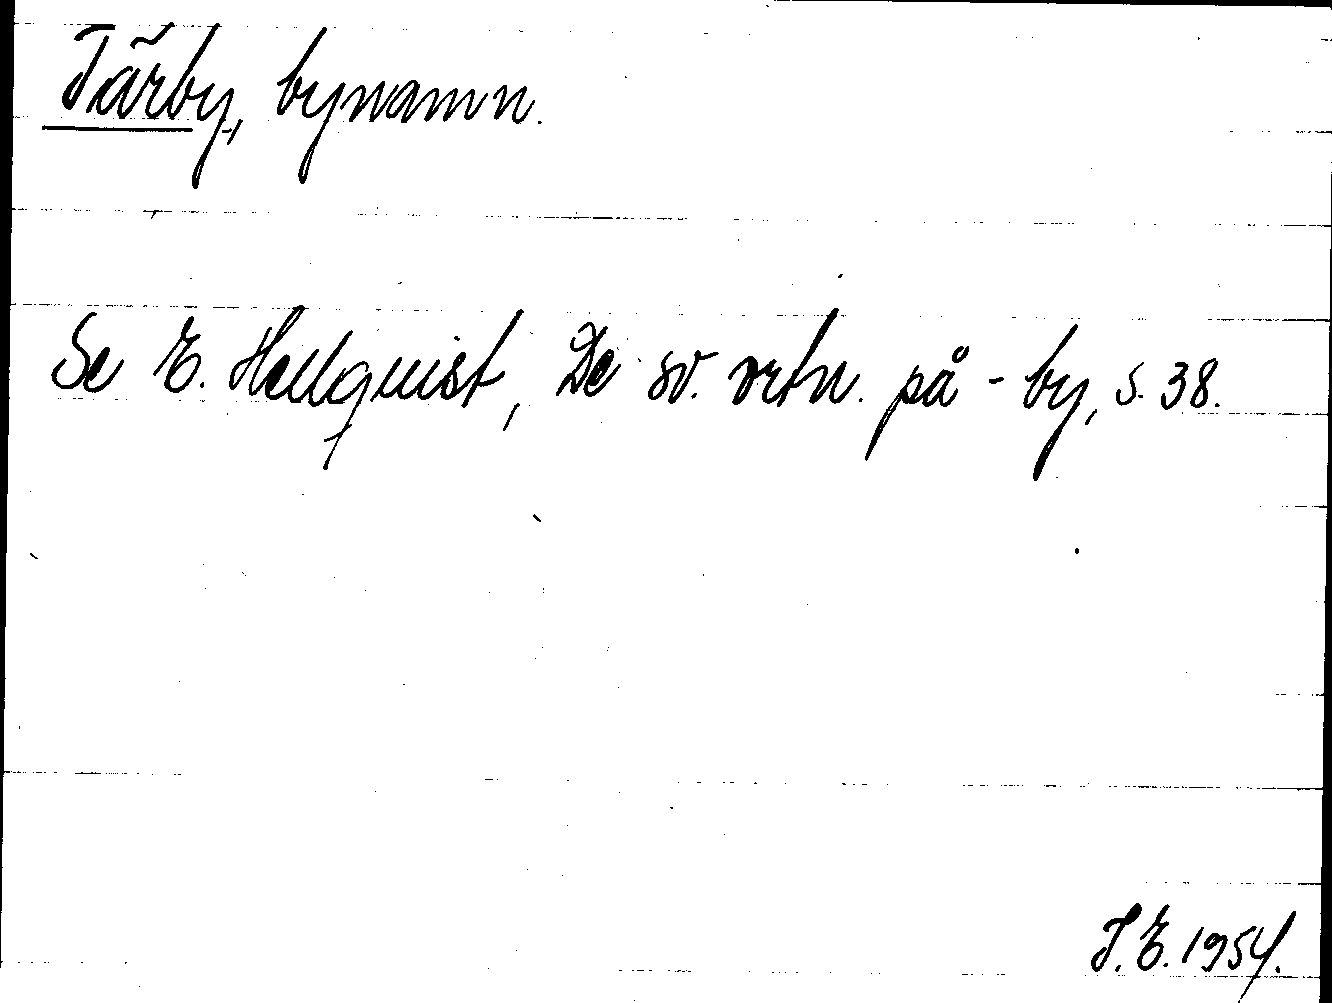 Tärby, bynamn.
Se E. Hellquist, De sv. ortn. på -by, s. 38.
T. E. 1954.